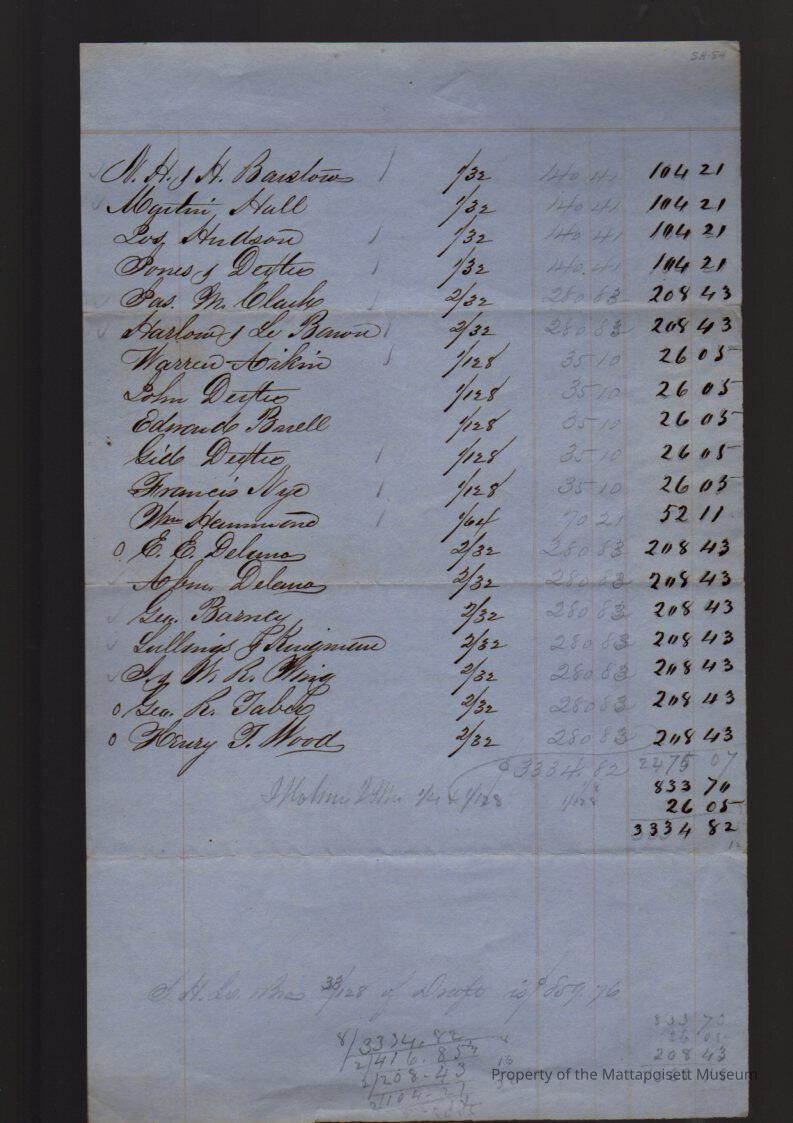 SH-84
N. H. & H. Barstow 1/32 140 41 104 21
Martin Hall 1/32 140 41 104 21
Jos. Hudson 1/32 140 41 104 21
Jones & Dexter 1/32 140.41 104 21
Jas. M. Clark 2/32 280 83 208 43
Harlow & Le Baron 2/32 280 83 208 43
Warren Aikin 1/128 35 10 26 05
John Dexter 1/128 35 10 26 05
Edward Buell 1/128 35 10 26 05
Gid. Dexter 1/128 35 10 26 05
Francis Nye 1/128 35 10 26 05
Wm Hammond 1/64 70 21 52 11
o E. E. Delano 2/32 280 83 208 43
Abm. Delano 2/32 280 83 208 43
Geo. Barney 2/32 280 83 208 43
Kingman 2/32 280 83 208 43
W. R. Wing 2/32 280 83 208 43
o Geo. R. Taber 2/32 280 83 208 43
o Henry T. Wood 2/32 280 83 208 43
$3334.82 2475 07
833 70
J Holmes 1/4 & 1/128 1/128 26 05
3334 82
12
33/128 of Draft is $859.76
833 70
26 05
8/3334.82 208 43
2/416.85
2/208-43
2/104-21
Property of the Mattapoisett Museum